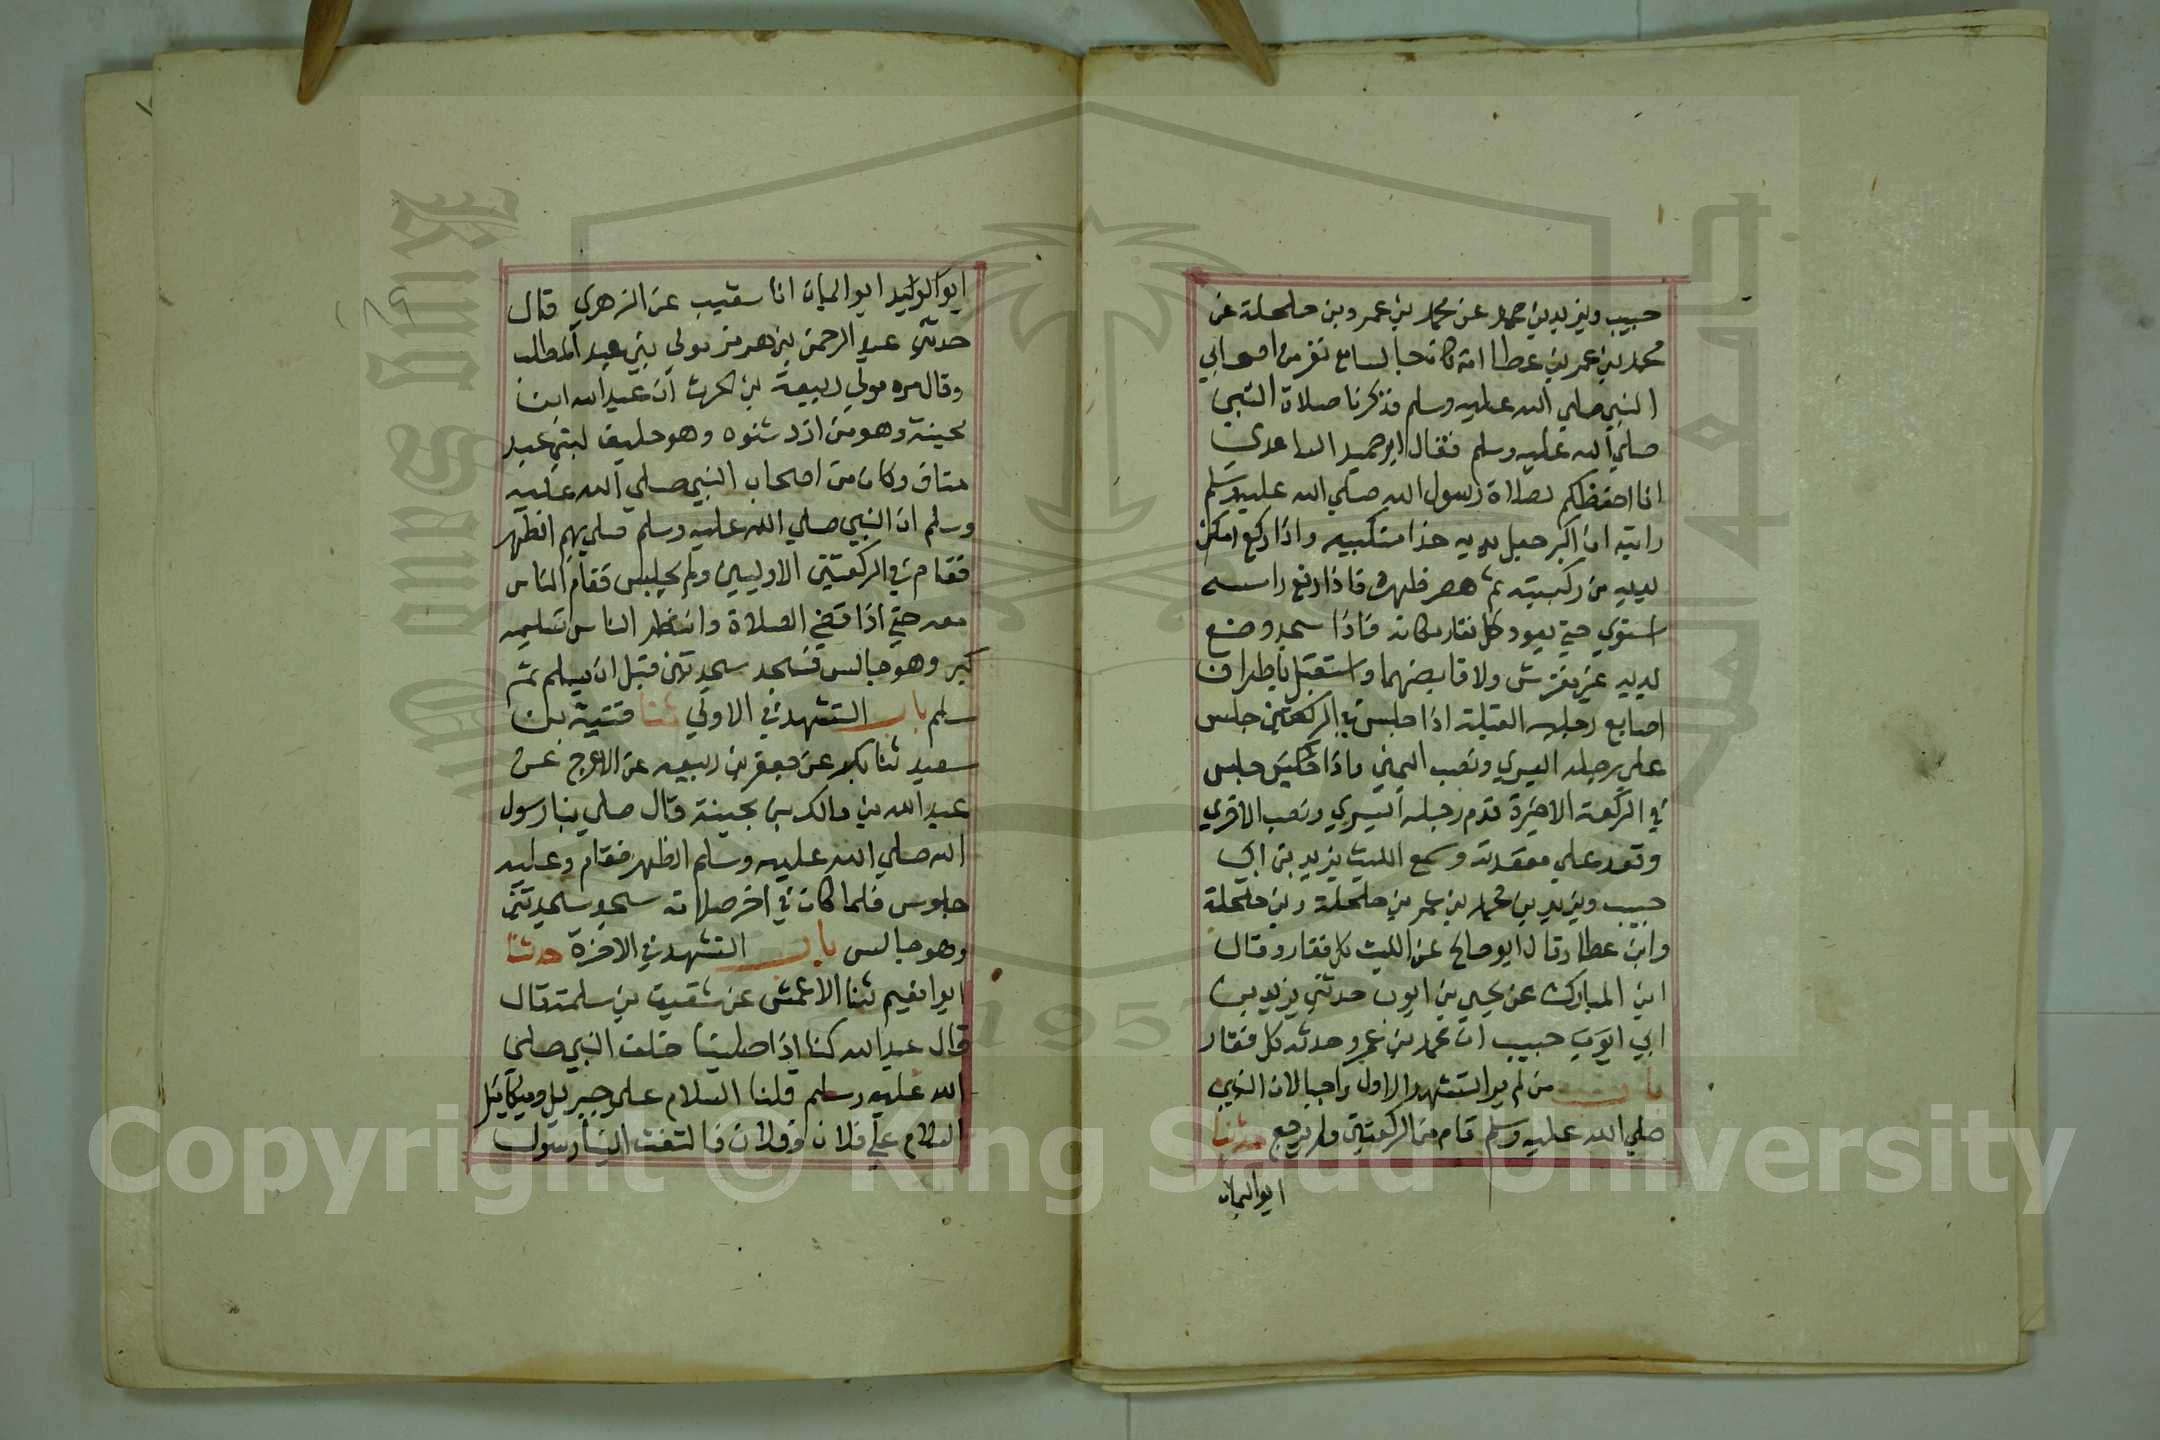 حبيب ويزيد بن حمد عن محمد بن عمرو بن حلحلة عن
محمد بن عمر بن عطا انه كان جالسا مع نفر من اصحابي
النبي صلي الله عليه وسلم فذكرنا صلاة النبي
صلي الله عليه وسلم فقال ابو حميد الساعدي
انا احفظكم لصلاة رسول الله صلي الله عليه وسلم
رايته اذا كبر جعل يديه حذا منكبيه واذا ركع امكن
يديه من ركبتيه ثم هصر ظهره فاذا رفع راسه
استوي حتي يعود كل فقار مكانه فاذا سجد وضع
يديه غير مفترش ولا قابضهما واستقبل باطراف
اصابع رجليه القبلة اذا جلس في الركعتين جلس
علي رجله اليسري ونصب اليمني واذا جلس
في الركعة الاخيرة قدم رجله اليسري ونصب الاخري
وقعد علي مقعدته وسمع الليث يزيد بن ابي
حبيب ويزيد بن محمد بن عمر بن حلحلة وبن حلحلة
وابن عطا وقال ابو صالح عن الليث كل فقار وقال
ابن المبارك عن يحيي بن ايوب حدثني يزيد بن
ابي ايوب حبيب ان محمد بن عمرو حدثه كل فقار
باب من لم ير التشهد الاول واجبا لان النبي
صلي الله عليه وسلم قام من الركعتين ولم يرجع حدثنا
ابو اليمان
ابو الوليد ابو اليمان انا شعيب عن الزهري قال
حدثني عبد الرحمن بن هرمز مولي بني عبد المطلب
وقال مره مولي ربيعة بن الحرث ان عبد الله ابن
بحينة وهو من ازد شنوه وهو حليف لبني عبد
مناف وكان من اصحاب النبي صلي الله عليه
وسلم ان النبي صلي الله عليه وسلم صلي بهم الظهر
فقام في الركعتين الاوليين ولم يجلس فقام الناس
معه حتي اذا قضي الصلاة وانتظر الناس تسليمه
كبر وهو جالس فسجد سجدتين قبل ان يسلم ثم
سلم باب التشهد في الاولي ثنا قتيبة بن
سعيد ثنا بكر عن جعفر بن ربيعه عن الاعرج عن
عبد الله بن مالك بن بحينة قال صلي بنا رسول
الله صلي الله عليه وسلم الظهر فقام وعليه
جلوس فلما كان في اخر صلاته سجد سجدتين
وهو جالس باب التشهد في الاخرة حدثنا
ابوا نعيم ثنا الاعمش عن شقيق بن سلمة قال
قال عبد الله كنا اذا صلينا خلف النبي صلي
الله عليه وسلم قلنا السلام علي جبريل وميكائيل
السلام علي فلان وفلان فالتفت الينا رسول
١٨٩
Copyright © King Saud University
King Saud University
1957